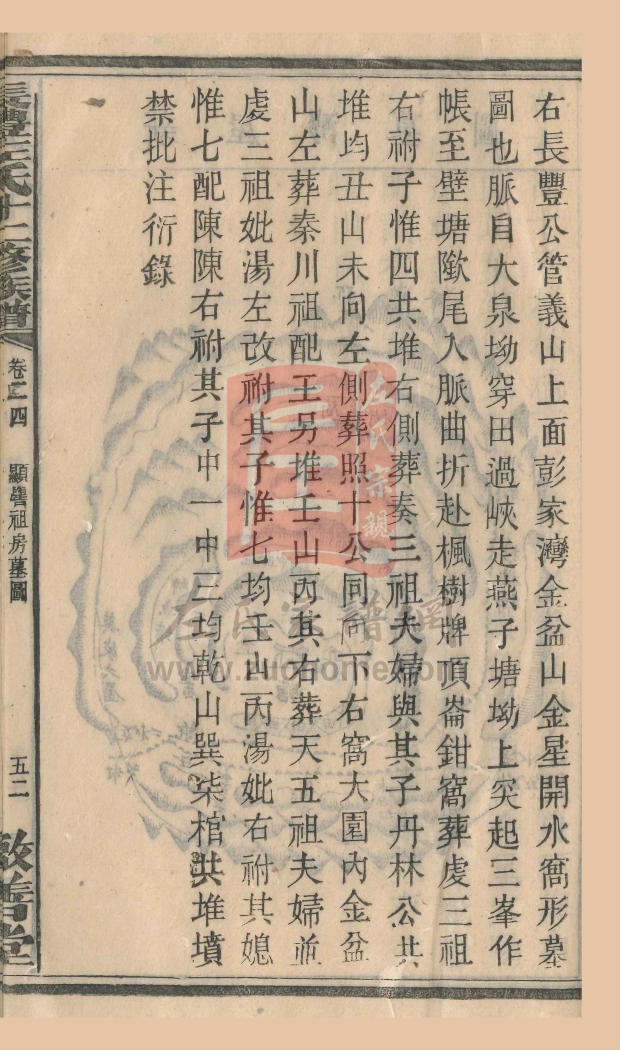 右長豐公管義山上面彭家灣金盆山金星開水窩形墓
圖也脈自大泉坳穿田過峽走燕子塘坳上突起三峯作
帳至壁塘墩尾入脈曲折赴楓樹牌頂崙鉗窩葬虔三祖
右祔子惟四共堆右側葬奏三祖夫婦與其子丹林公共
堆均丑山未向左側葬照十公同向下右窩大園內金盆
山左葬秦川祖配王另堆壬山丙其右葬天五祖夫婦並
虔三祖妣湯左改祔其子惟七均壬山丙湯妣右祔其媳
惟七配陳陳右祔其子中一中三均乾山巽柒棺共堆墳
禁批注衍錄
長豐左氏十二修族譜
卷二四
顯譽祖房墓圖
五二
敦善堂
左氏宗親
左氏家譜網
www.zuohome.com